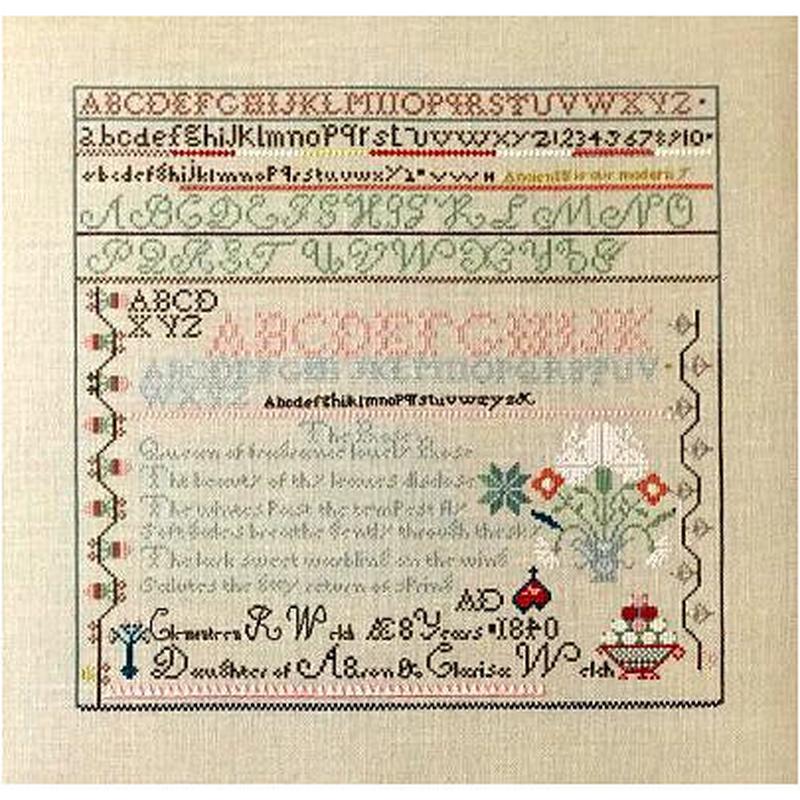 ABCDEFGHIJKLMNOPQRSTUVWXYZ
abcdefghiJKlmnoPqrstuvwxyz12345678910
abcdefghiJklmnoPqrstuvwxyz
ABCDEFGHIJKLMNO
PQRSTUVWXYZ&
ABCD
XYZ
ABCDEFGHIJK
ABCDEFGHIJKLMNOPQRSTUV
WXYZ
AbcdefghiklmnoPqrstuvwxyz&
The Rose
Queen of fragrance lovely Rose
The beauty of thy leaves disclose
The winters Past the temPest fly
Soft Gales breathe Gently through the sky
The lark sweet warbling on the wing
Salutes the Gay return of sPring
AD
R Welch Æ 8 Years 1840
Daughter of Aaron & Clarisa Welch